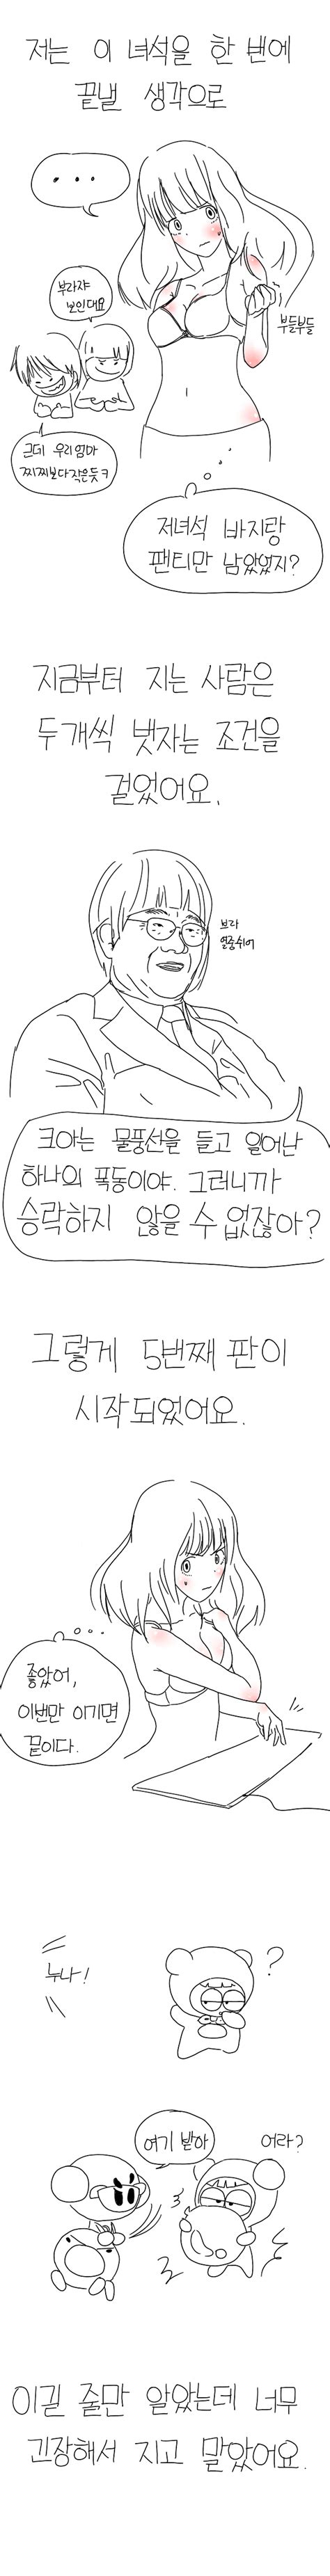 저는 이 녀석을 한 번에
끝낼 생각으로
...
부라쟈
보인대요
부들부들
근데 우리 엄마
찌찌보다 작은듯ㅋ
저녀석 바지랑
팬티만 남았었지?
지금부터 지는 사람은
두개씩 벗자는 조건을
걸었어요.
브라
열중쉬어
크아는 물풍선을 들고 일어난
하나의 폭동이야. 그러니까
승락하지 않을 수 없잖아?
그렇게 5번째 판이
시작되었어요.
좋았어,
이번만 이기면
끝이다.
누나!
?
여기 받아
어라?
이길 줄만 알았는데 너무
긴장해서 지고 말았어요.